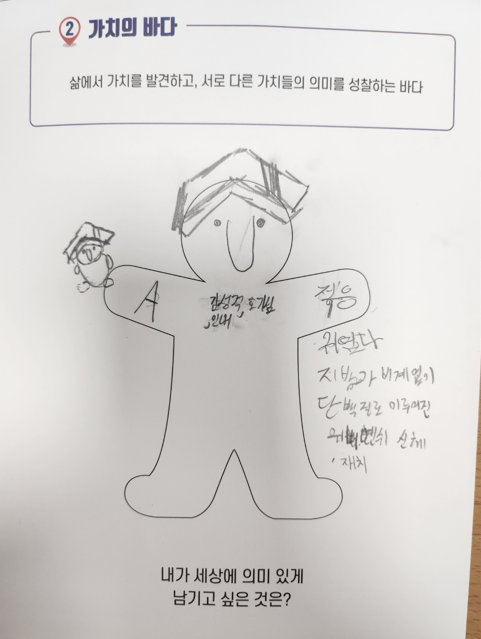 2 가치의 바다
삶에서 가치를 발견하고, 서로 다른 가치들의 의미를 성찰하는 바다
A
젊음
인내
귀엽다
지방과 비계 없이
단백질로 이루어진
신체
재치
내가 세상에 의미 있게
남기고 싶은 것은?